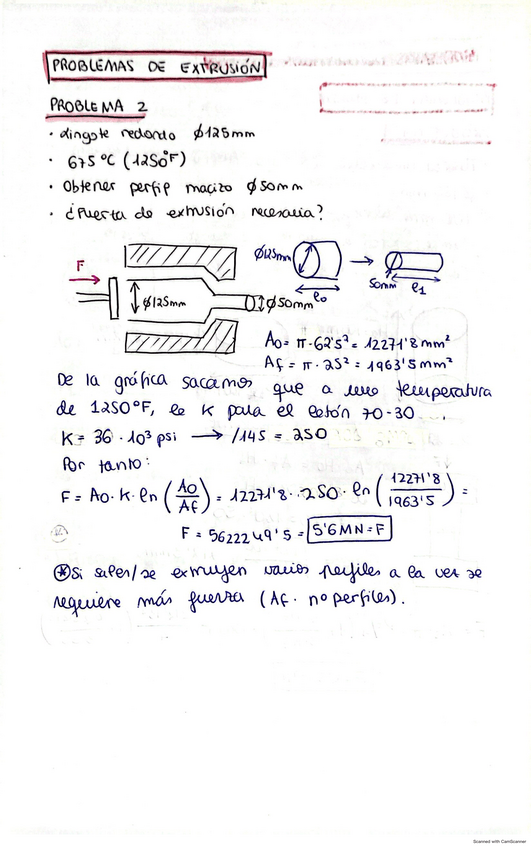 PROBLEMAS DE EXTRUSIÓN
PROBLEMA 2
· Lingote redondo ϕ125mm
· 675 ºC (1250ºF)
· Obtener perfip macizo ϕ50mm
· ¿Fuerza de extrusión necesaria?
F
ϕ125mm
ϕ50mm
ϕ125mm
ℓ₀
50mm
ℓ₁
A₀ = π·62'5² = 12271'8 mm²
Af = π·25² = 1963'5 mm²
De la gráfica sacamos que a una temperatura
de 1250ºF, le K para el latón 70-30.
K = 36·10³ psi → /145 = 250
Por tanto:
F = A₀·K·ln (A₀/Af) = 12271'8·250·ln (12271'8/1963'5) =
F = 5622249'5 = 5'6 MN = F
* Si salen/se extruyen varios perfiles a la vez se
requiere más fuerza (Af · nº perfiles).
Scanned with CamScanner